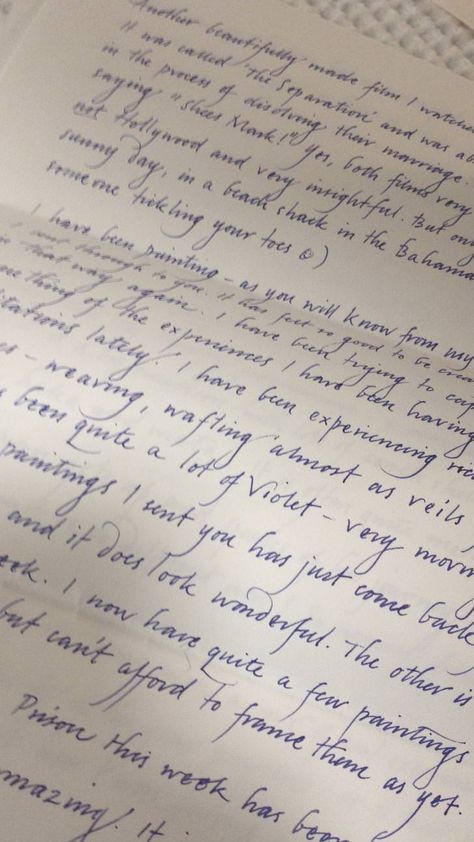 Another beautifully made film I watched
It was called 'The Separation' and was ab
in the process of disolving their marriage.
saying "shees Mark!" Yes, both films very
not Hollywood and very insightful. But on
sunny day, in a beach shack in the Bahama
someone tickling your toes ☺)
I have been painting - as you will know from my
I sent through to you. It has felt so good to be crea
in that way again. I have been trying to cap
one thing of the experiences I have been having
itations lately. I have been experiencing
es - weaving, wafting almost as veils
been quite a lot of Violet - very
paintings I sent you has just come back
and it does look wonderful. The other is
eek. I now have quite a few paintings
but can't afford to frame them as yet.
Prison this week has been
mazing! It